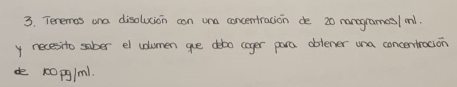 3. Tenemos una disolución con una concentración de 20 nanogramos/ml.
y necesito saber el volumen que debo coger para obtener una concentración
de 100pg/ml.